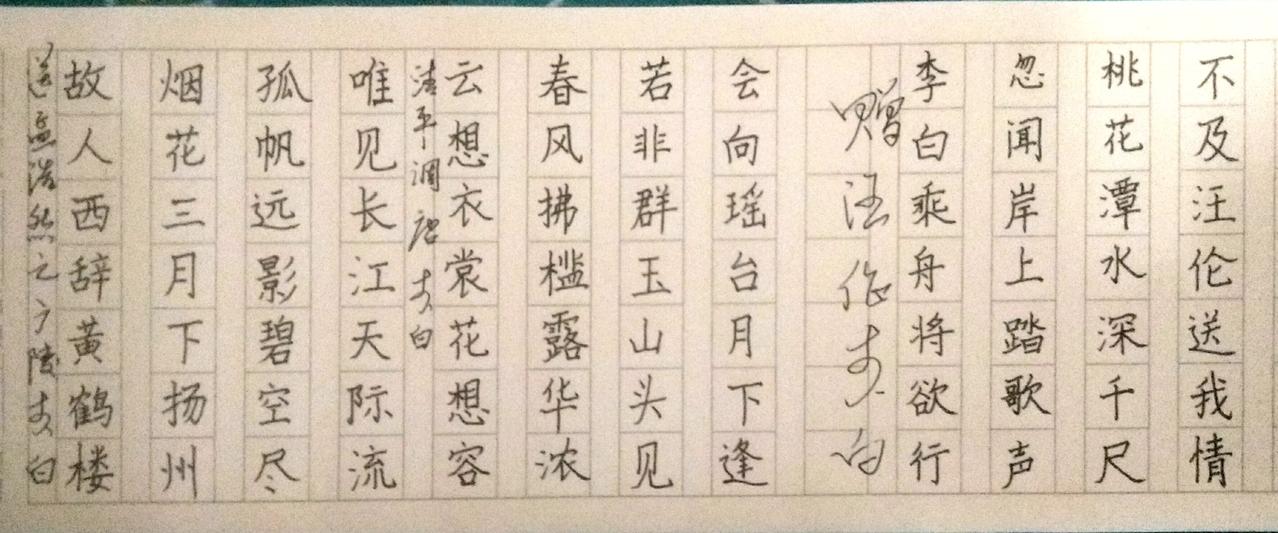 送孟浩然之广陵李白
故人西辞黄鹤楼
烟花三月下扬州
孤帆远影碧空尽
唯见长江天际流
清平调 唐 李白
云想衣裳花想容
春风拂槛露华浓
若非群玉山头见
会向瑶台月下逢
赠汪伦李白
李白乘舟将欲行
忽闻岸上踏歌声
桃花潭水深千尺
不及汪伦送我情